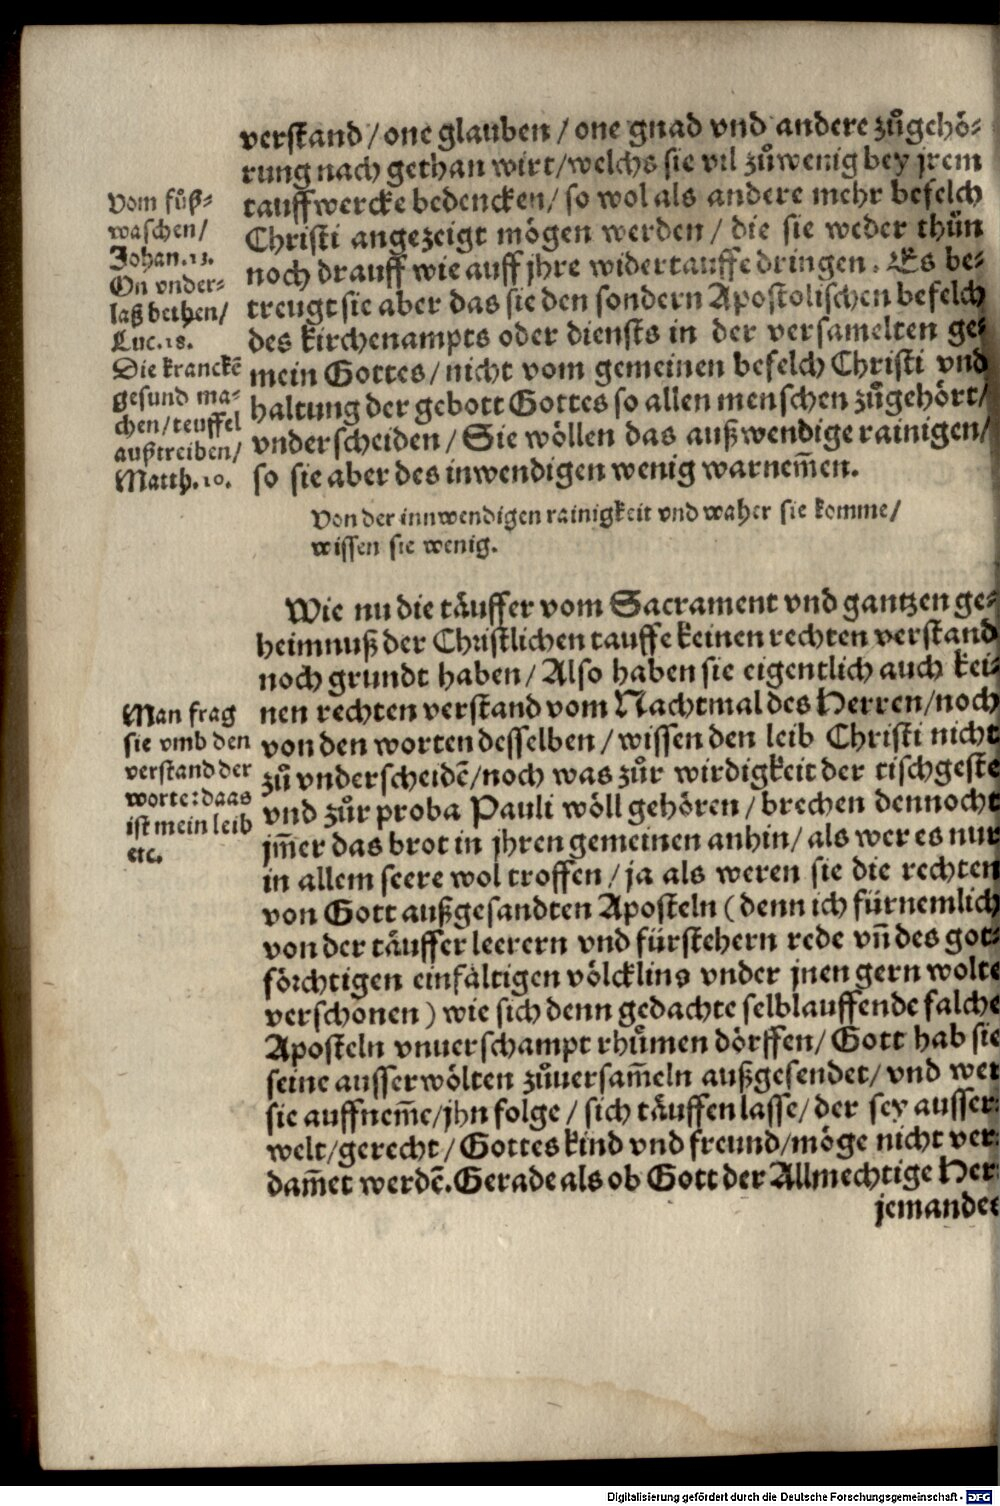 verstand / one glauben / one gnad vnd andere zůgehö⸗
rung nach gethan wirt / welchs sie vil zůwenig bey jrem
tauffwercke bedencken / so wol als andere mehr befelch
Christi angezeigt mögen werden / die sie weder thůn
noch drauff wie auff jhre widertauffe dringen. Es be⸗
treugt sie aber das sie den sondern Apostolischen befelch
des kirchenampts oder diensts in der versamelten ge⸗
mein Gottes / nicht vom gemeinen befelch Christi vnd
haltung der gebott Gottes so allen menschen zůgehört /
vnderscheiden / Sie wöllen das außwendige rainigen /
so sie aber des inwendigen wenig warnem̃en.
Vom fůß⸗
waschen /
Johan. 13.
On vnder⸗
laß bethen /
Luc. 18.
Die kranckē
gesund ma⸗
chen / teuffel
außtreiben /
Matth. 10.
Von der innwendigen rainigkeit vnd waher sie komme /
wissen sie wenig.
Wie nu die täuffer vom Sacrament vnd gantzen ge⸗
heimnuß der Christlichen tauffe keinen rechten verstand
noch grundt haben / Also haben sie eigentlich auch kei⸗
nen rechten verstand vom Nachtmal des Herren / noch
von den worten desselben / wissen den leib Christi nicht
zů vnderscheidē / noch was zůr wirdigkeit der tischgeste
vnd zůr proba Pauli wöll gehören / brechen dennocht
jm̃er das brot in jhren gemeinen anhin / als wer es nur
in allem seere wol troffen / ja als weren sie die rechten
von Gott außgesandten Aposteln (denn ich fürnemlich
von der täuffer leerern vnd fürstehern rede vñ des got⸗
förchtigen einfältigen völcklins vnder jnen gern wolte
verschonen) wie sich denn gedachte selblauffende falche
Aposteln vnuerschampt rhůmen dörffen / Gott hab sie
seine ausserwölten zůuersam̃eln außgesendet / vnd wer
sie auffnem̃e / jhn folge / sich täuffen lasse / der sey ausser⸗
welt / gerecht / Gottes kind vnd freund / möge nicht ver⸗
dam̃et werdē. Gerade als ob Gott der Allmechtige Her
Man frag
sie vmb den
verstand der
worte: daas
ist mein leib
etc.
jemandet
Digitalisierung gefördert durch die Deutsche Forschungsgemeinschaft - DFG